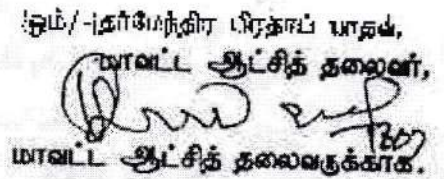 ஒம்/-தர்மேந்திர பிரதாப் யாதவ்,
மாவட்ட ஆட்சித் தலைவர்,
மாவட்ட ஆட்சித் தலைவருக்காக.